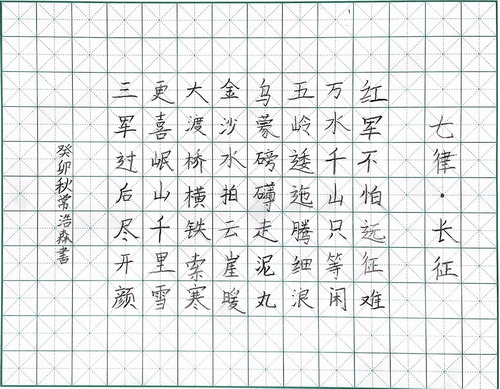 七律·长征
红军不怕远征难
万水千山只等闲
五岭逶迤腾细浪
乌蒙磅礴走泥丸
金沙水拍云崖暖
大渡桥横铁索寒
更喜岷山千里雪
三军过后尽开颜
癸卯秋常浩森书